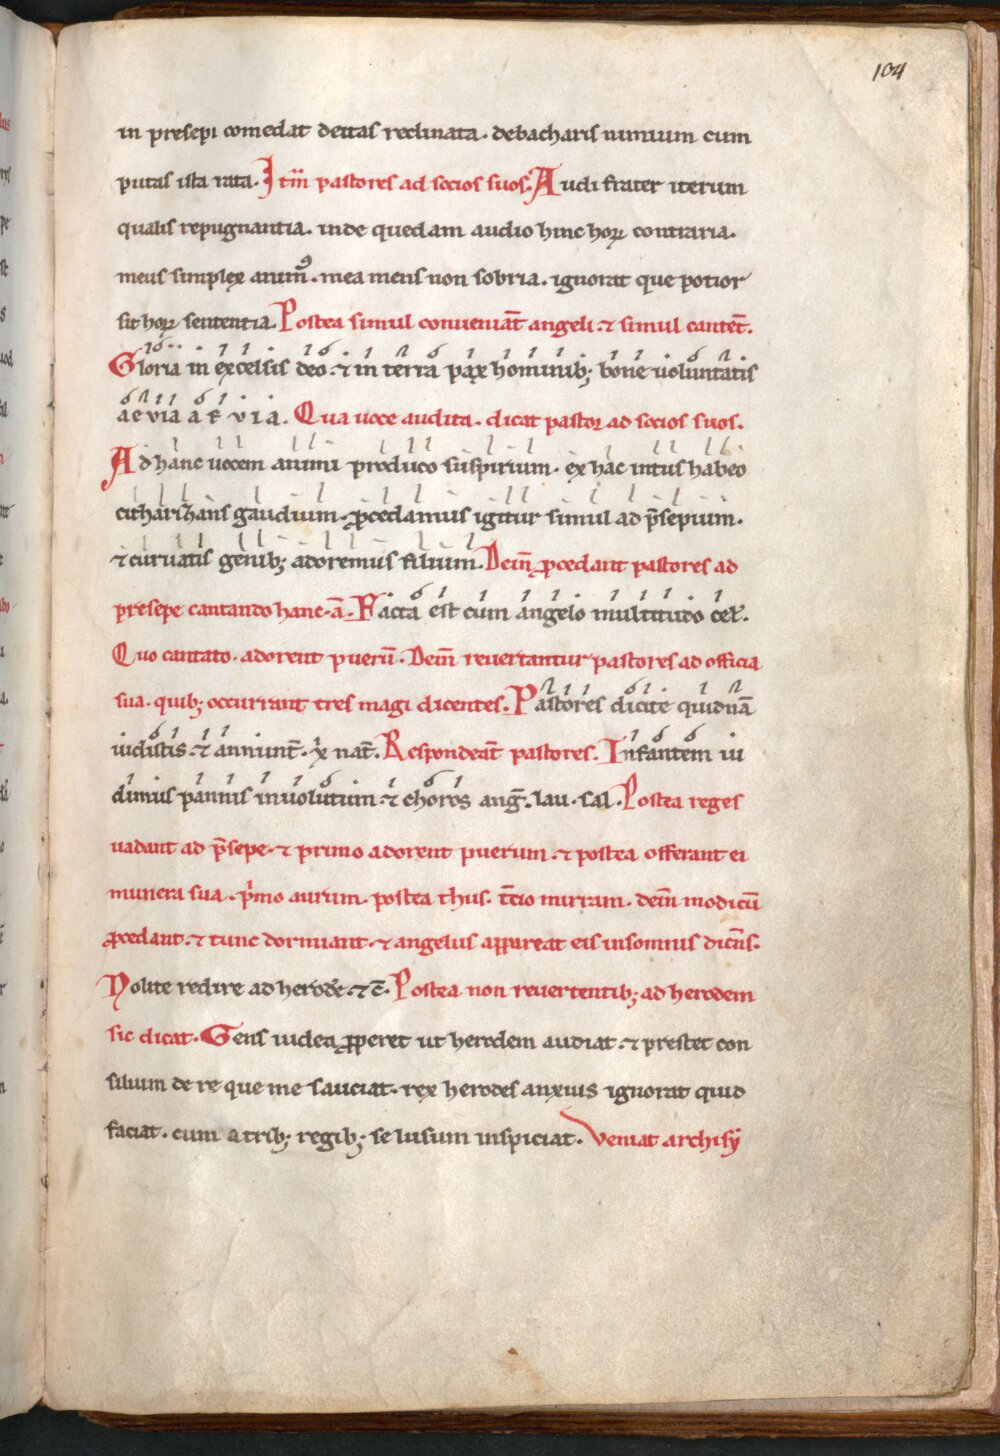 104
in presepi comedat deitas reclinata. debacharis nimium cum
putas ista rata. Itm̄ pastores ad socios suos. Audi frater iterum
qualis repugnantia. inde quedam audio hinc hoꝝ contraria.
meus simplex animꝰ. mea mens non sobria. ignorat que potior
sit hoꝝ sententia. Postea simul conueniāt angeli ⁊ simul cantēt.
Gloria in excelsis deo. ⁊ in terra pax hominib; bone uoluntatis
aevia aevia. Qua uoce audita. dicat pastor ad socios suos.
Ad hanc uocem animi produco suspirium. ex hac intus habeo
citharizans gaudium. ꝓcedamus igitur simul ad p̄sepium.
⁊ curuatis genib; adoremus filium. Dein̄ ꝓcedant pastores ad
presepe cantando hanc .ā. Facta est cum angelo multitudo cel̄.
Quo cantato. adorent puerū. Dein̄ reuertantur pastores ad officia
sua. quib; occurrant tres magi dicentes. Pastores dicite quidnā
uidistis. ⁊ annunt̄. x̄ nat̄. Respondeāt pastores. Infantem ui
dimus pannis inuolutum. ⁊ choros anḡ. lau. sal. Postea reges
uadant ad p̄sepe. ⁊ primo adorent puerum. ⁊ postea offerant ei
munera sua. p̍mo aurum. postea thus. t̄cio mirram. dein̄ modicū
ꝓcedant. ⁊ tunc dormiant. ⁊ angelus appareat eis in somnis dicēs.
Nolite redire ad herodē. ⁊ c̄. Postea non reuertentib; ad herodem
sic dicat. Gens iudea ꝓperet ut herodem audiat. ⁊ prestet con
silium de re que me sauciat. rex herodes anxius ignorat quid
faciat. cum a trib; regib; se lusum inspiciat. Veniat archisẏ